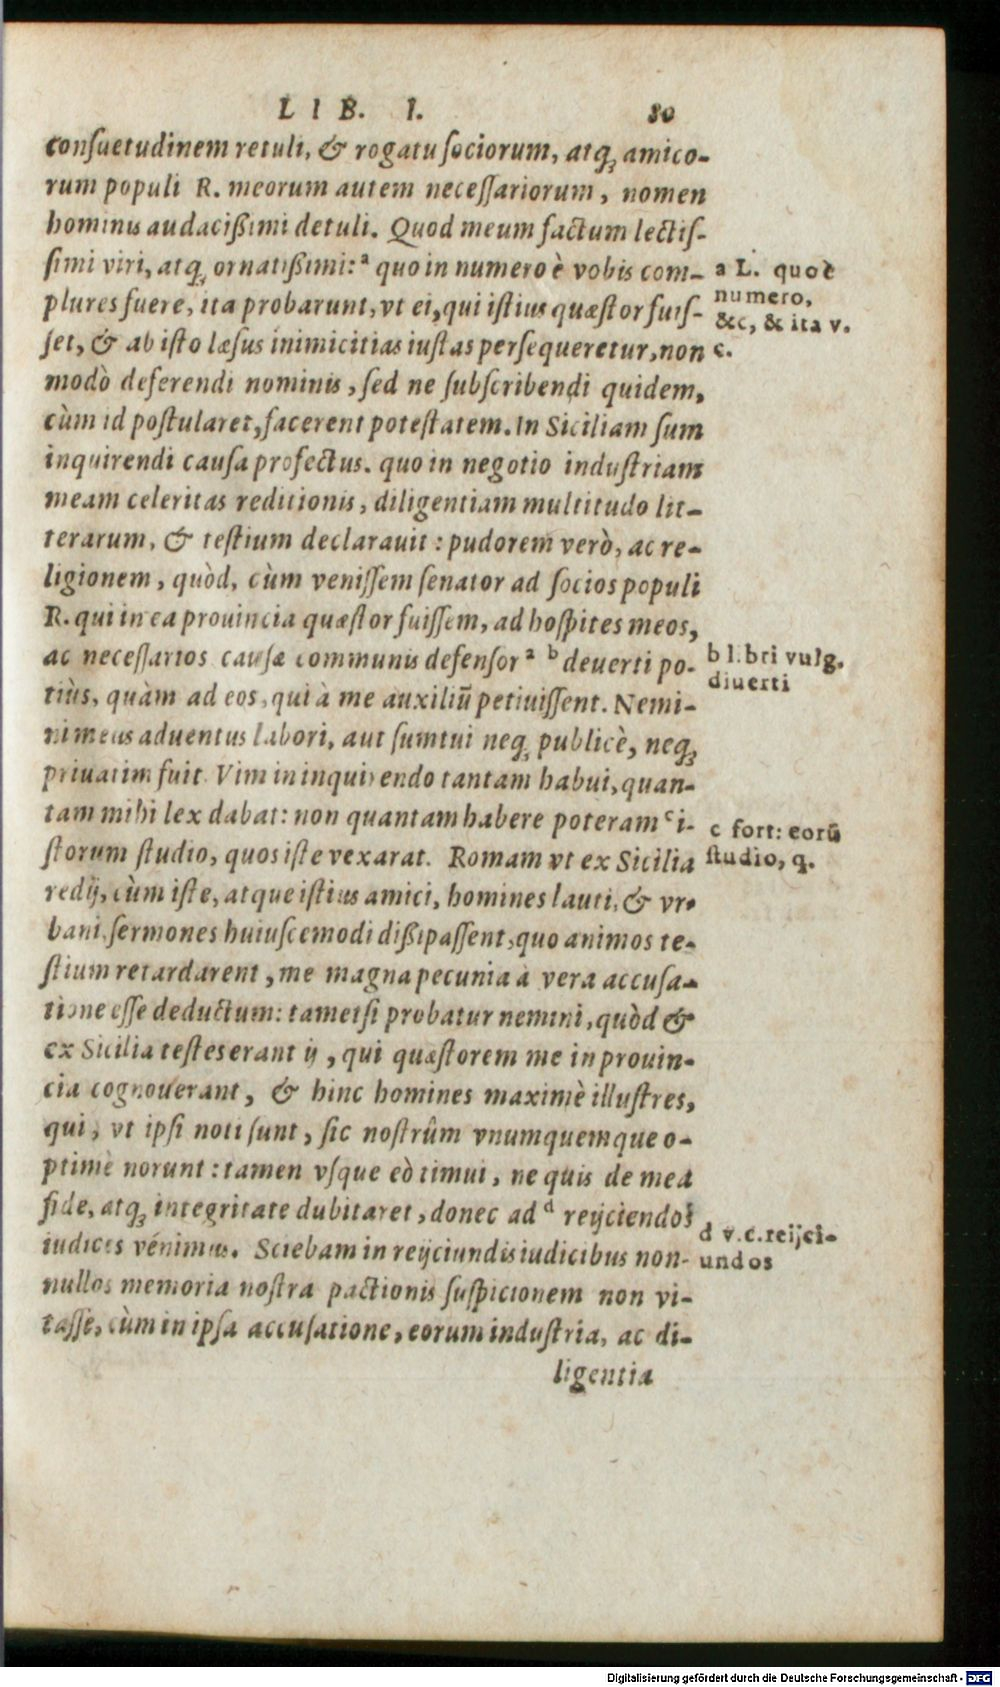 LIB. I. 80
consuetudinem retuli, & rogatu sociorum, atq; amico-
rum populi R. meorum autem necessariorum, nomen
hominis audacißimi detuli. Quod meum factum lectis-
simi viri, atq; ornatißimi: a quo in numero è vobis com-
plures fuere, ita probarunt, vt ei, qui istius quæstor fuis-
set, & ab isto læsus inimicitias iustas persequeretur, non
modò deferendi nominis, sed ne subscribendi quidem,
cùm id postularet, facerent potestatem. In Siciliam sum
inquirendi causa profectus. quo in negotio industriam
meam celeritas reditionis, diligentiam multitudo lit-
terarum, & testium declarauit: pudorem verò, ac re-
ligionem, quòd, cùm venissem senator ad socios populi
R. qui in ea prouincia quæstor fuissem, ad hospites meos,
ac necessarios causæ communis defensor a b deuerti po-
tiùs, quàm ad eos, qui à me auxiliū petiuissent. Nemi-
ni meus aduentus labori, aut sumtui neq; publicè, neq;
priuatim fuit. Vim in inquirendo tantam habui, quan-
tam mihi lex dabat: non quantam habere poteram c i-
storum studio, quos iste vexarat. Romam vt ex Sicilia
redij, cùm iste, atque istius amici, homines lauti, & vr-
bani, sermones huiuscemodi dißipassent, quo animos te-
stium retardarent, me magna pecunia à vera accusa-
tione esse deductum: tametsi probatur nemini, quòd &
ex Sicilia testes erant ij, qui quæstorem me in prouin-
cia cognouerant, & hinc homines maximè illustres,
qui, vt ipsi noti sunt, sic nostrûm vnumquemque o-
ptimè norunt: tamen vsque eò timui, ne quis de mea
fide, atq; integritate dubitaret, donec ad d reijciendos
iudices vénimus. Sciebam in reijciundis iudicibus non-
nullos memoria nostra pactionis suspicionem non vi-
tasse, cùm in ipsa accusatione, eorum industria, ac di-
ligentia
a L. quo è
numero,
&c, & ita v.
c.
b libri vulg.
diuerti
c fort: eorū
studio, q.
d v.c. reijci-
undos
Digitalisierung gefördert durch die Deutsche Forschungsgemeinschaft - DFG